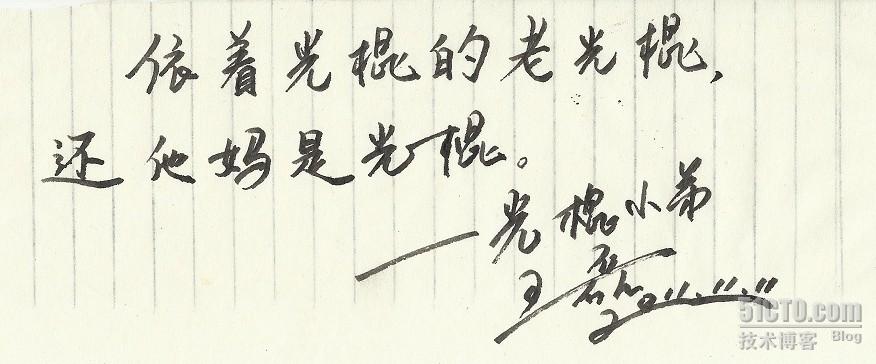 依着光棍的老光棍,
还他妈是光棍。
——光棍小弟
王磊2011.11.11
51CTO.com
技术博客 Blog